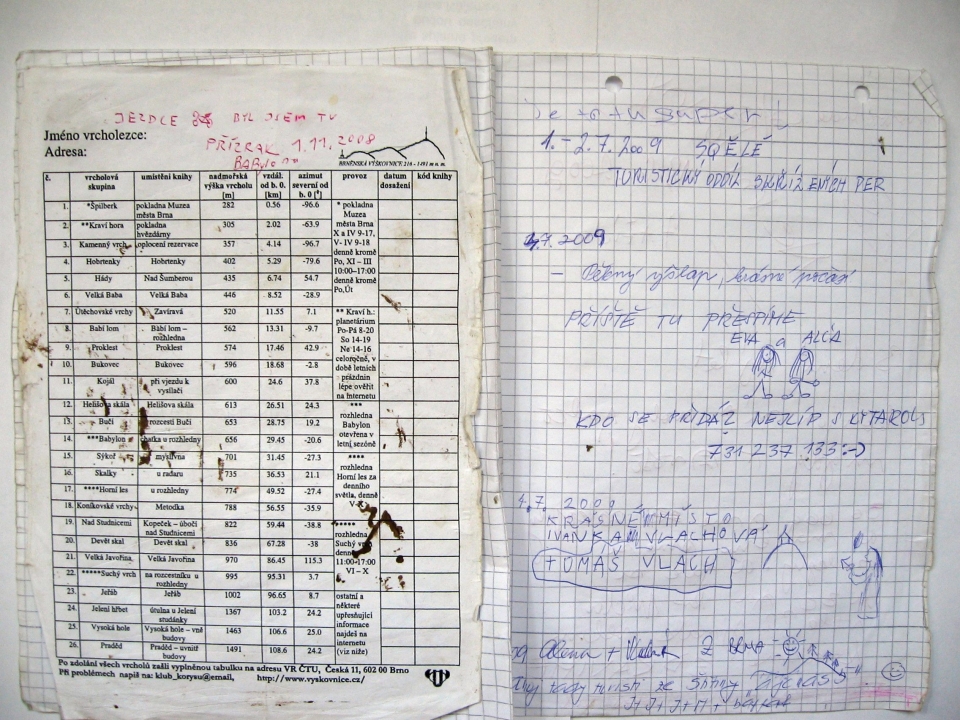 JEZDCE BYL JSEM TU
PŘÍZRAK 1.11.2008
BABYLON
Jméno vrcholezce:
Adresa:
BRNĚNSKÁ VÝŠKOVNICE 218 - 1491 m n. m.
č. vrcholová skupina umístění knihy nadmořská výška vrcholu [m] vzdál. od b. 0. [km] azimut severní od b. 0 [°] provoz datum dosažení kód knihy
1. *Špilberk pokladna Muzea města Brna 282 0.56 -96.6
2. **Kraví hora pokladna hvězdárny 305 2.02 -63.9
3. Kamenný vrch oplocení rezervace 357 4.14 -96.7
4. Hobrtenky Hobrtenky 402 5.29 -79.6
5. Hády Nad Šumberou 435 6.74 54.7
6. Velká Baba Velká Baba 446 8.52 -28.9
7. Útěchovské vrchy Zavíravá 520 11.55 7.1
8. Babí lom Babí lom – rozhledna 562 13.31 -9.7
9. Proklest Proklest 574 17.46 42.9
10. Bukovec Bukovec 596 18.68 -2.8
11. Kojál při vjezdu k vysílači 600 24.6 37.8
12. Helišova skála Helišova skála 613 26.51 24.3
13. Bučí rozcestí Bučí 653 28.75 19.2
14. ***Babylon chatka u rozhledny 656 29.45 -20.6
15. Sýkoř myslivna 701 31.45 -27.3
16. Skalky u radaru 735 36.53 21.1
17. ****Horní les u rozhledny 774 49.52 -27.4
18. Koníkovské vrchy Metodka 788 56.55 -35.9
19. Nad Studnicemi Kopeček – úbočí nad Studnicemi 822 59.44 -38.8
20. Devět skal Devět skal 836 67.28 -38
21. Velká Javořina Velká Javořina 970 86.45 115.3
22. *****Suchý vrch na rozcestníku u rozhledny 995 95.31 3.7
23. Jeřáb Jeřáb 1002 96.65 8.7
24. Jelení hřbet útulna u Jelení studánky 1367 103.2 24.2
25. Vysoká hole Vysoká hole – vně budovy 1463 106.6 25.0
26. Praděd Praděd – uvnitř budovy 1491 108.6 24.2
* pokladna
Muzea
města Brna
X a IV 9-17,
V- IV 9-18
denně kromě
Po, XI – III
10:00–17:00
denně kromě
Po,Út
** Kraví h.:
planetárium
Po-Pá 8-20
So 14-19
Ne 14-16
celoročně, v
době letních
prázdnin
lépe ověřit
na Internetu
***
rozhledna
Babylon
otevřena v
letní sezóně
****
rozhledna
Horní les za
denního
světla, denně
*****
rozhledna
Suchý vrch
denně
11:00-17:00
VI – X
ostatní a
některé
upřesňující
informace
najdeš na
internetu
(viz níže)
Po zdolání všech vrcholů zašli vyplněnou tabulku na adresu VR ČTU, Česká 11, 602 00 Brno
Při problémech napiš na: klub_korysu@email, http://www.vyskovnice.cz/
je to tu super!
1.-2.7.2009 SQĚLÉ
TURISTICKÝ ODDÍL SKŘÍŽENÝCH PER
7.2009
PŘÍŠTĚ TU PŘESPÍME
EVA a ALČA
KDO SE PŘIDÁ? NEJLÍP S KYTAROU
731 237 133 :-)
4.7. 2009
KRÁSNÉ MÍSTO
IVANKA VLACHOVÁ
+ TOMÁŠ VLACH
Z BRNA